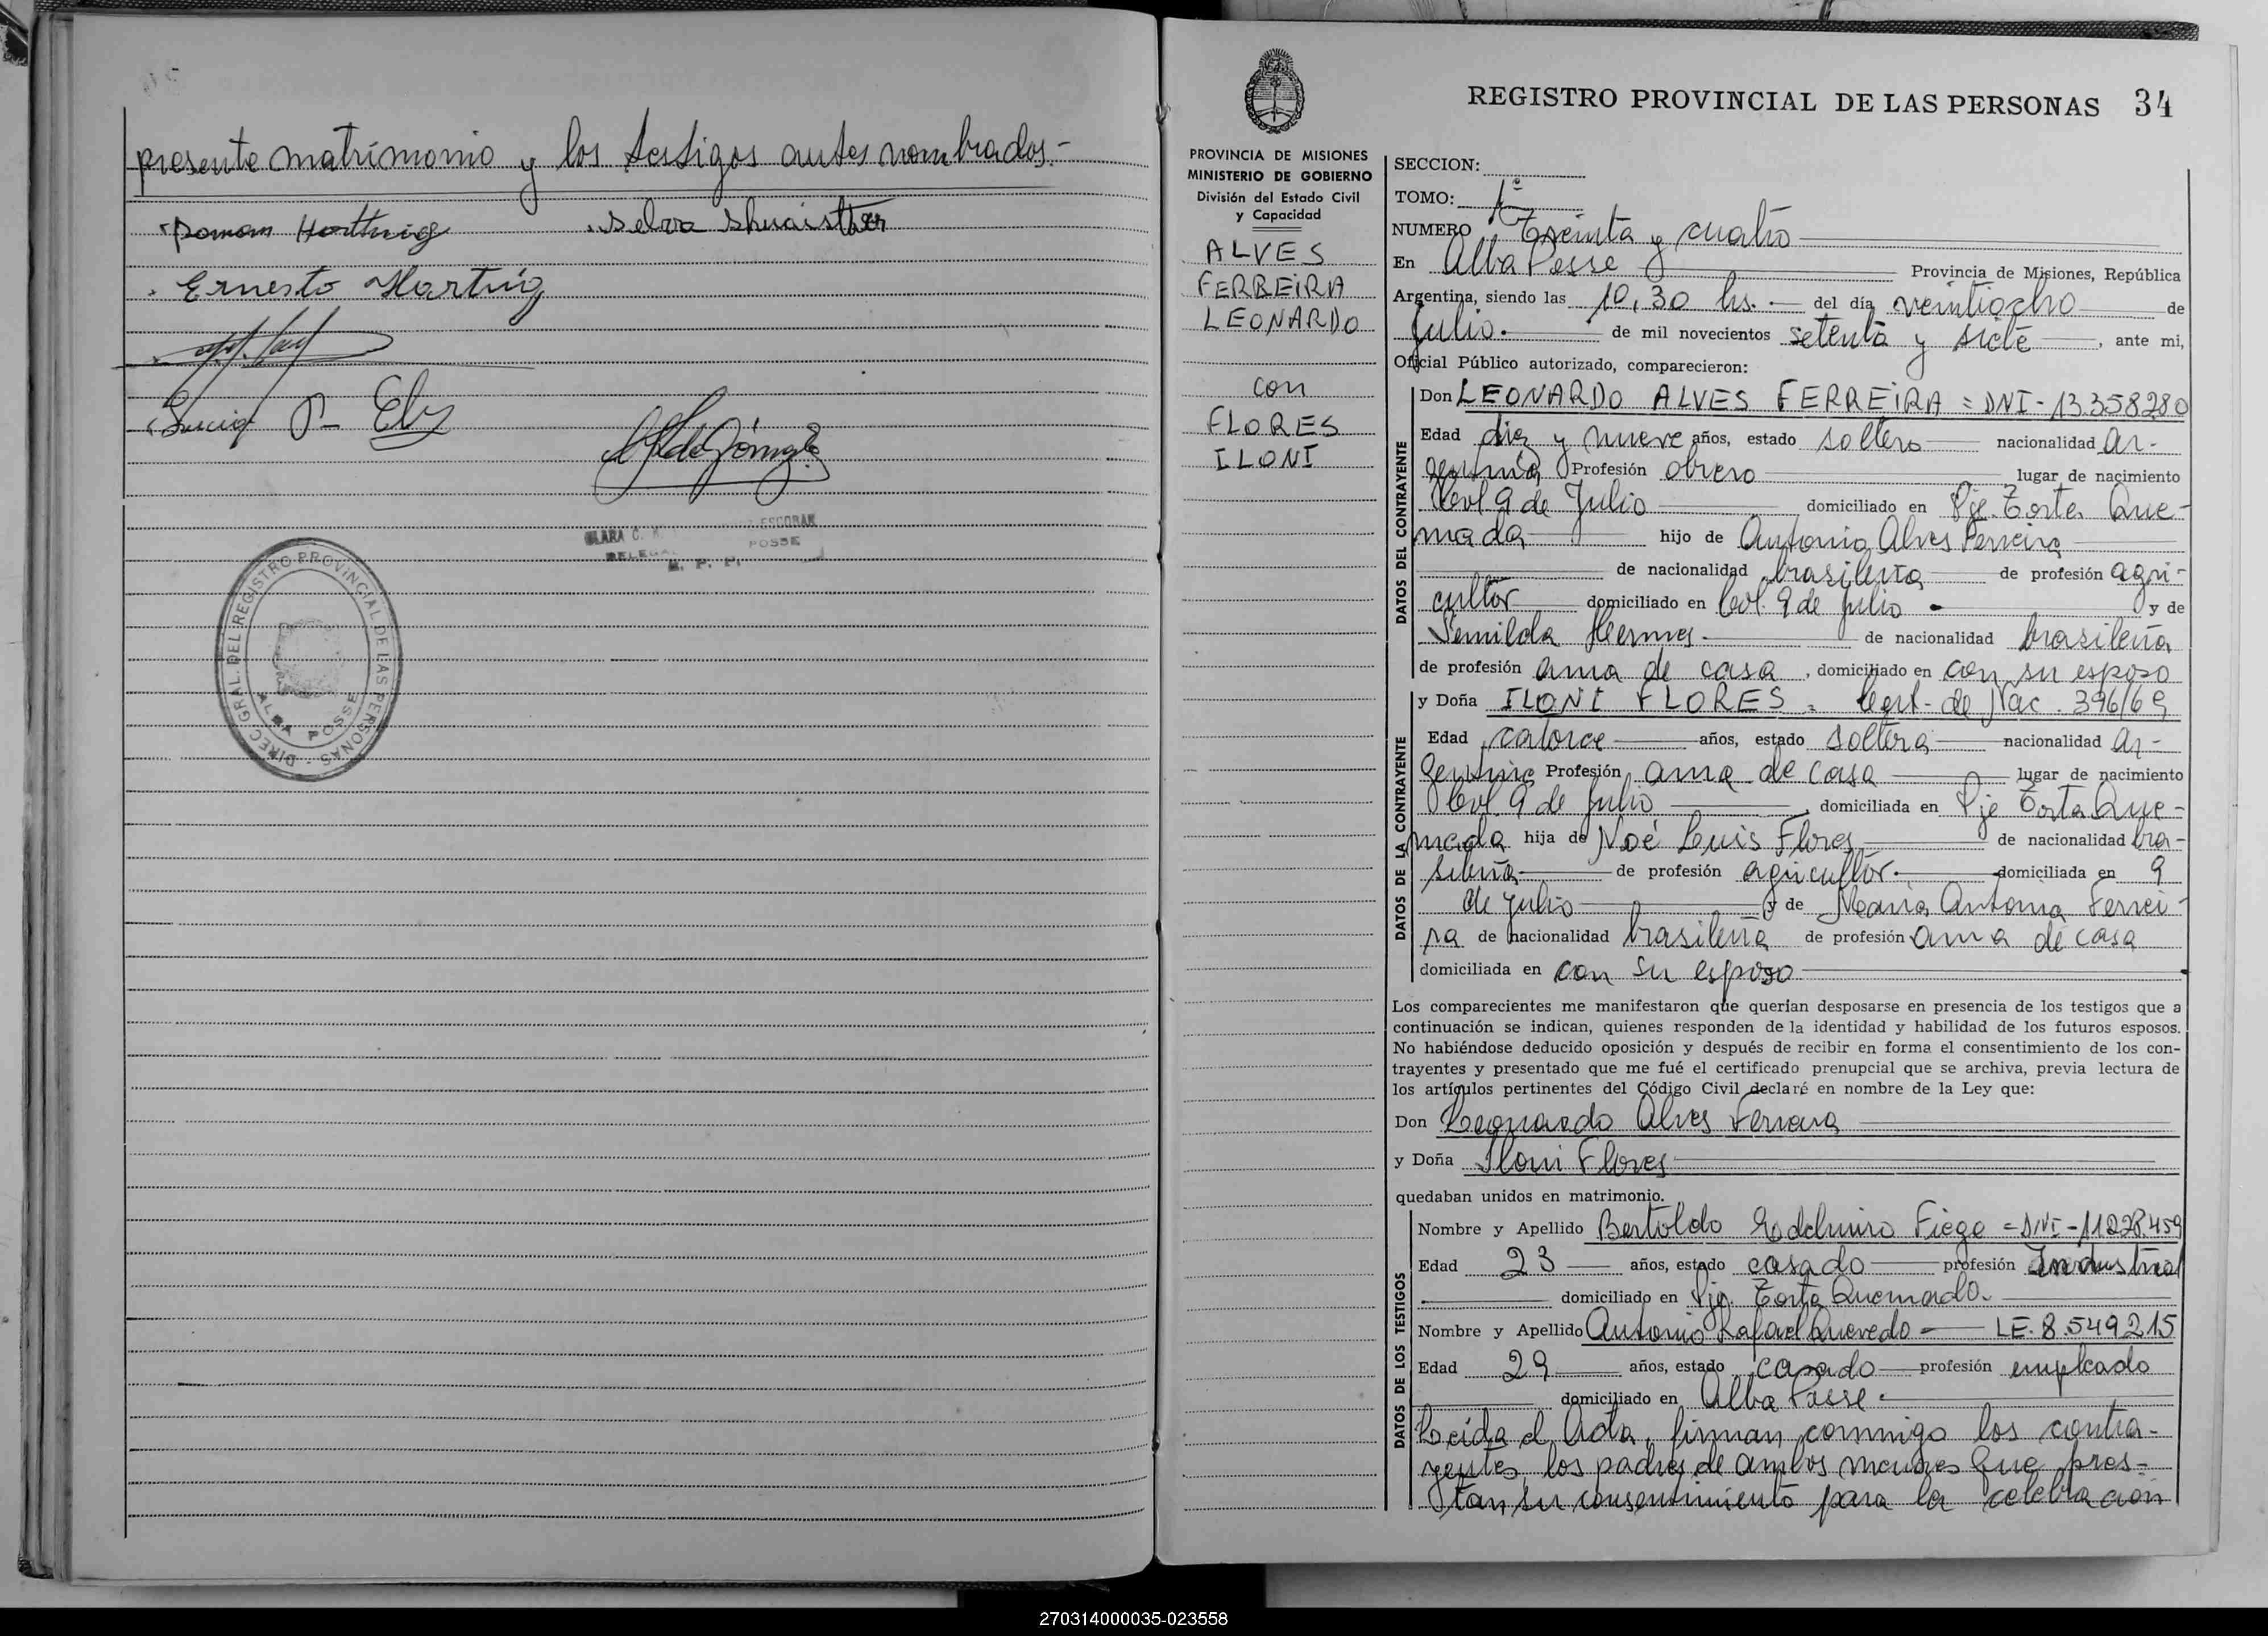 presente matrimonio y los testigos antes nombrados.-
Roman Harttwig
Selva Shuaisther
Ernesto Hartwig
DIREC. GRAL. DEL REGISTRO PROVINCIAL DE LAS PERSONAS -
ALBA POSSE
CLARA C. ESCOBAR
DELEGA POSSE
R. P. P.
REGISTRO PROVINCIAL DE LAS PERSONAS 34
PROVINCIA DE MISIONES
MINISTERIO DE GOBIERNO
División del Estado Civil
y Capacidad
ALVES
FERREIRA
LEONARDO
con
FLORES
ILONI
SECCION:
TOMO: 1º
NUMERO Treinta y cuatro
En Alba Posse Provincia de Misiones, República
Argentina, siendo las 10,30 hs. - del día veintiocho de
Julio. de mil novecientos setenta y siete, ante mi,
Oficial Público autorizado, comparecieron:
DATOS DEL CONTRAYENTE
Don LEONARDO ALVES FERREIRA = DNI - 13.358280
Edad diez y nueve años, estado soltero nacionalidad ar-
gentina Profesión obrero lugar de nacimiento
Col 9 de Julio domiciliado en Pje. Torta Que-
mada hijo de Antonio Alves Ferreira
de nacionalidad brasileña de profesión agri-
cultor domiciliado en Col. 9 de julio y de
Hermes. de nacionalidad brasileña
de profesión ama de casa, domiciliado en con su esposo
DATOS DE LA CONTRAYENTE
y Doña ILONI FLORES = Cert. de Nac. 396/69
Edad catorce años, estado soltera nacionalidad ar-
gentina Profesión ama de casa lugar de nacimiento
Col. 9 de Julio, domiciliada en Pje Torta Que-
mada hija de Noé Luis Flores de nacionalidad bra-
sileña de profesión agricultor. domiciliada en 9
de julio y de Maria Antonia Ferrei-
ra de nacionalidad brasileña de profesión ama de casa
domiciliada en con su esposo
Los comparecientes me manifestaron que querían desposarse en presencia de los testigos que a
continuación se indican, quienes responden de la identidad y habilidad de los futuros esposos.
No habiéndose deducido oposición y después de recibir en forma el consentimiento de los con-
trayentes y presentado que me fué el certificado prenupcial que se archiva, previa lectura de
los artículos pertinentes del Código Civil declaré en nombre de la Ley que:
Don Leonardo Alves Ferreira
y Doña Iloni Flores
quedaban unidos en matrimonio.
DATOS DE LOS TESTIGOS
Nombre y Apellido Bertoldo Edelmiro Fiege = DNI - 11228.459
Edad 23 años, estado casado profesión Industrial
domiciliado en Pje. Torta Quemada.
Nombre y Apellido Antonio Rafael Quevedo - LE. 8.549215
Edad 29 años, estado casado profesión empleado
domiciliado en Alba Posse.
Leida el Acta, firman conmigo los contra-
yentes, los padres de ambos menores que pres-
tan su consentimiento para la celebracion
270314000035-023558